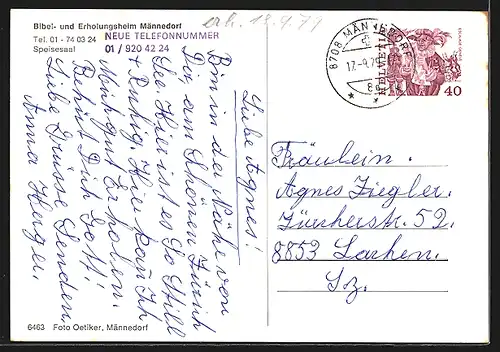 Bibel- und Erholungsheim Männedorf
Tel. 01 - 74 03 24
Speisesaal
NEUE TELEFONNUMMER
01 / 920 42 24
erh. 18.9.79
Liebe Agnes!
Bin in der Nähe von
Dir am Schönen Zürich
See Hier ist es So Still
+ Ruhig. Hier kan Ich
Mich gut Erholen.
Behüt Dich Gott!
Liebe Grüsse Senden
Anna Herger.
8708 MÄNNEDORF
17.-9.79
HELVETIA
40
Fräulein.
Agnes Ziegler.
Zürcherstr. 52.
8853 Lachen.
Sz.
6463 Foto Oetiker, Männedorf